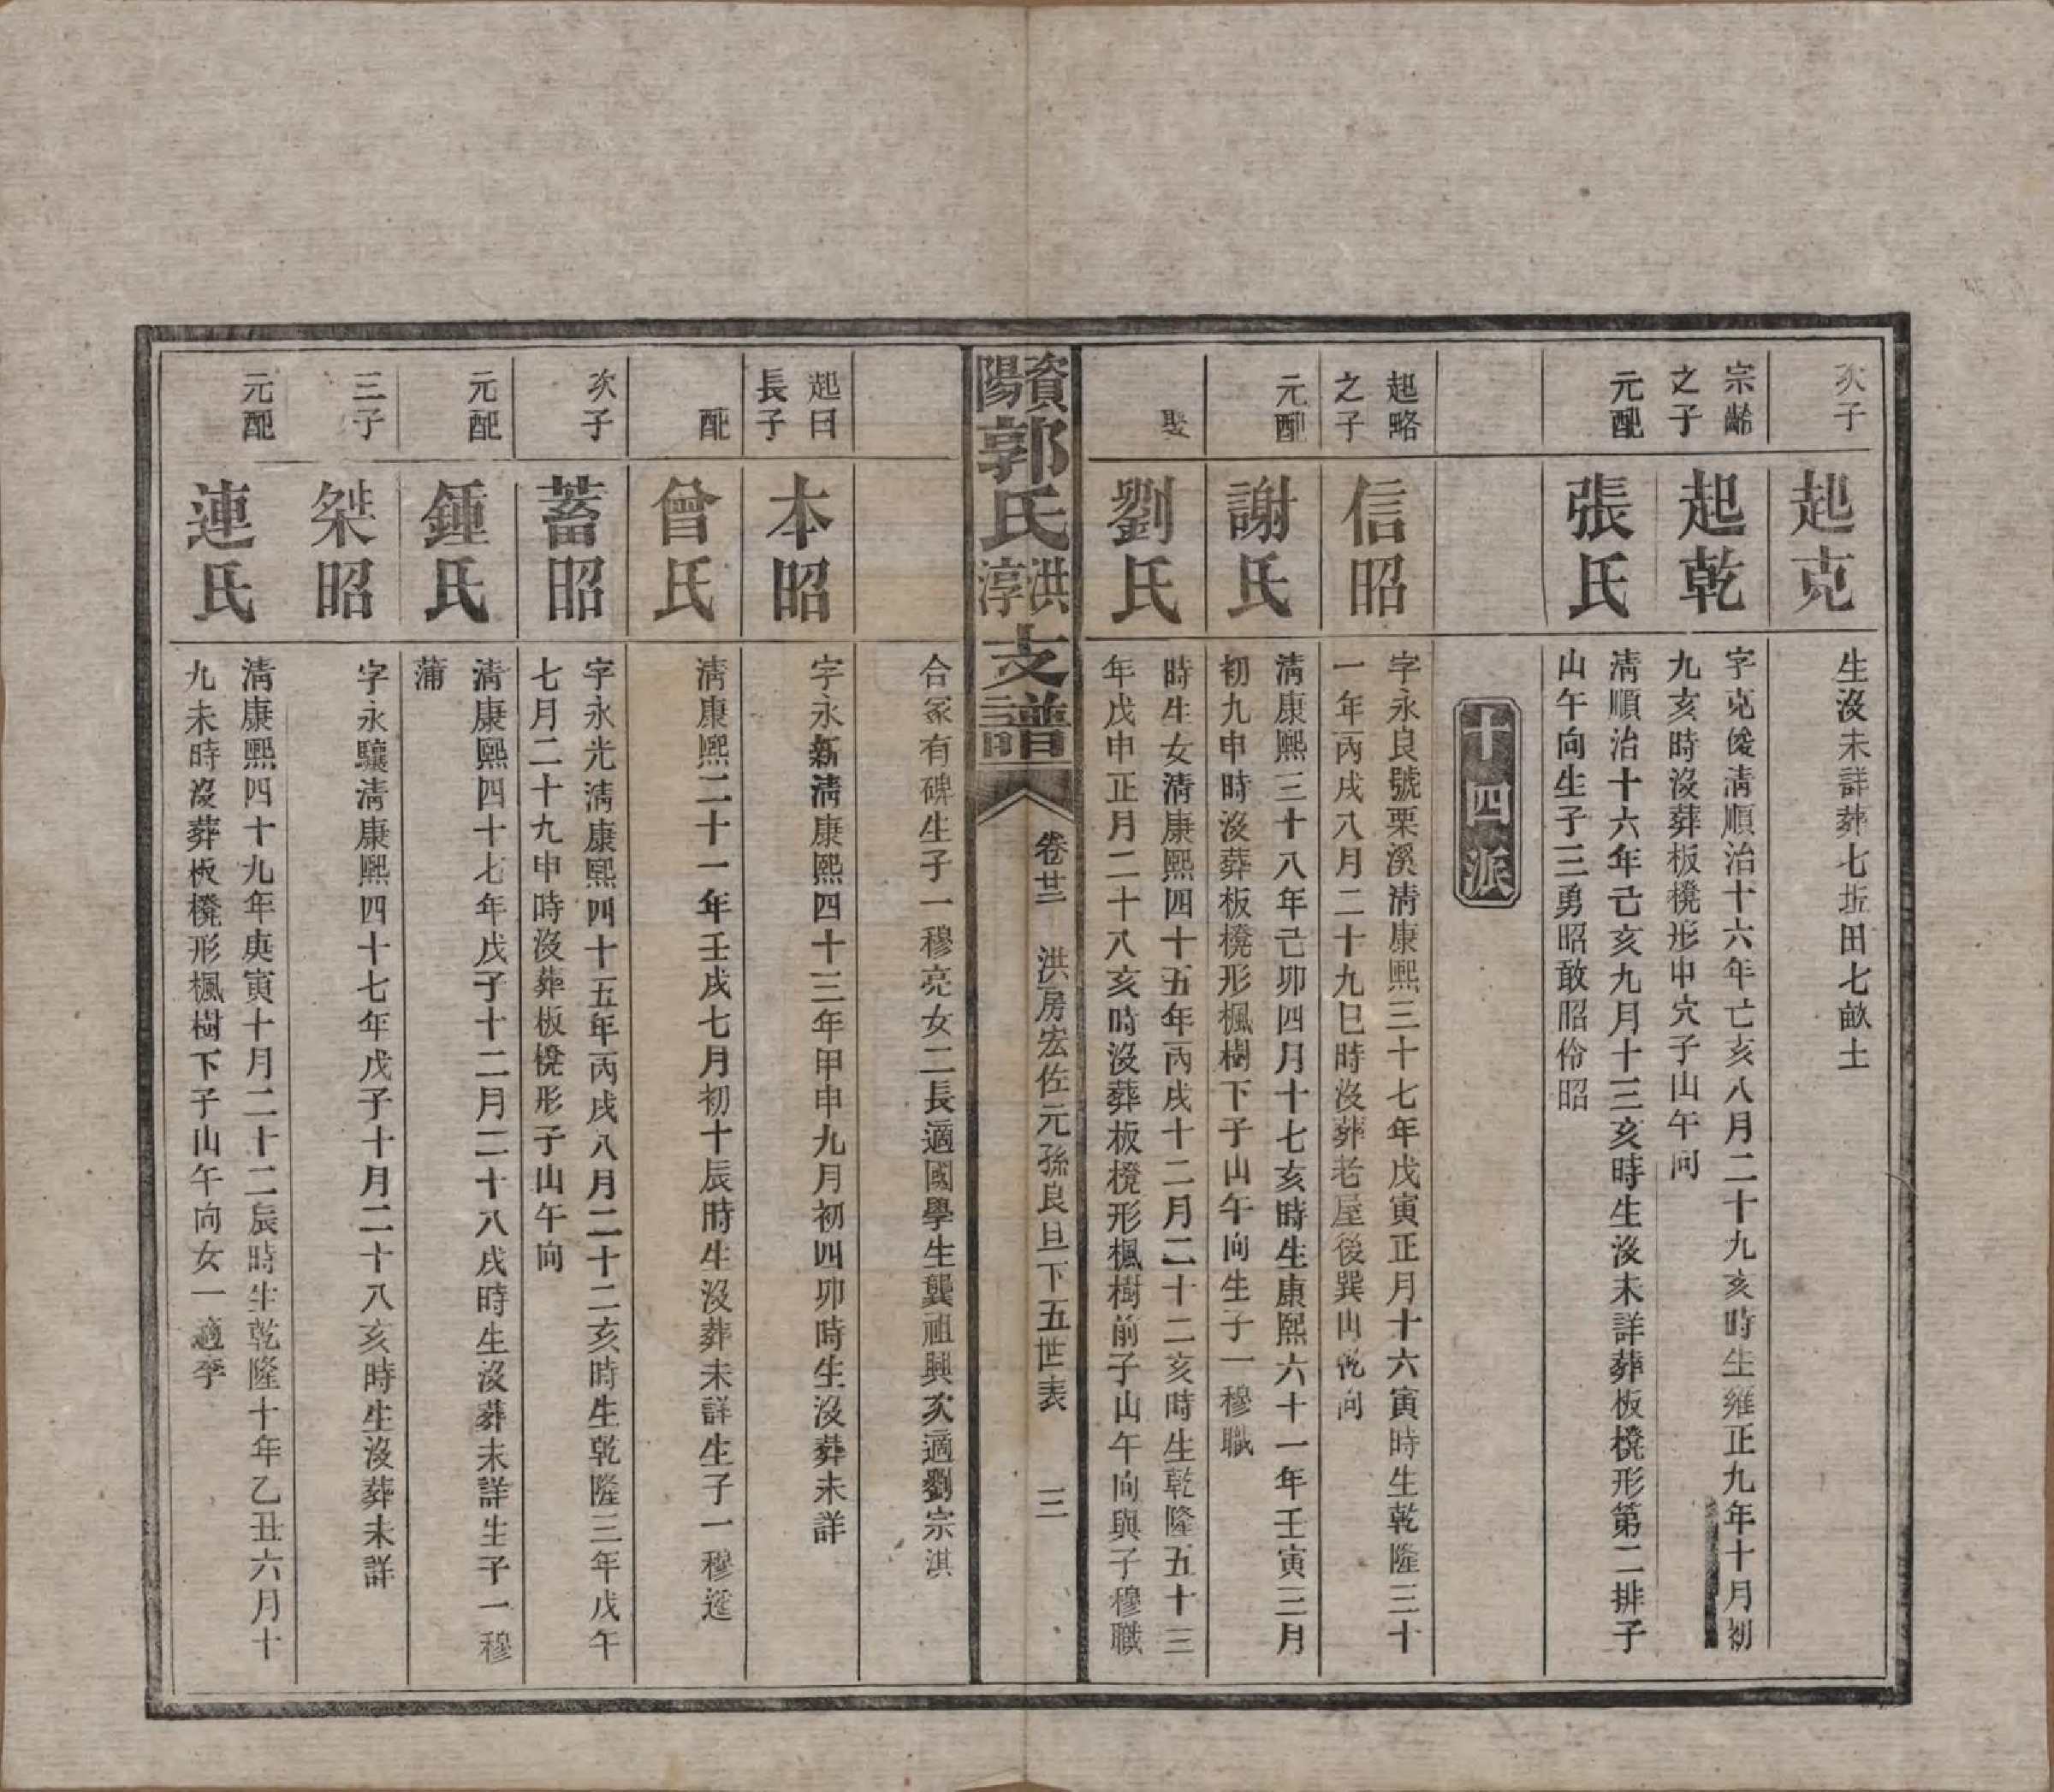 次子
起克
生沒未詳葬七坵田七畝土
宗齡
之子
起乾
字克俊清順治十六年亡亥八月二十九亥時生雍正九年十月初
九亥時沒葬板櫈形中穴子山午向
元配
張氏
清順治十六年己亥九月十三亥時生沒未詳葬板櫈形第二排子
山午向生子三勇昭敢昭伶昭
十四派
起略
之子
信昭
字永良號栗溪清康熙三十七年戊寅正月十六寅時生乾隆三十
一年丙戌八月二十九巳時沒葬老屋後巽山乾向
元配
謝氏
清康熙三十八年己卯四月十七亥時生康熙六十一年壬寅三月
初九申時沒葬板櫈形楓樹下子山午向生子一穆職
娶
劉氏
時生女清康熙四十五年丙戌十二月二十二亥時生乾隆五十三
年戊申正月二十八亥時沒葬板櫈形楓樹前子山午向與子穆職
資陽郭氏洪淳支譜
卷廿三 洪房宏佐元孫良旦下五世表 三
合冢有碑生子一穆亮女二長適國學生龔祖興次適劉宗淇
起日
長子
本昭
字永新清康熙四十三年甲申九月初四卯時生沒葬未詳
配
曾氏
清康熙二十一年壬戌七月初十辰時生沒葬未詳生子一穆
次子
蓄昭
字永光清康熙四十五年丙戌八月二十二亥時生乾隆三年戊午
七月二十九申時沒葬板櫈形子山午向
元配
鍾氏
清康熙四十七年戊子十二月二十八戌時生沒葬未詳生子一穆
蒲
三子
桀昭
字永驤清康熙四十七年戊子十月二十八亥時生沒葬未詳
元配
連氏
清康熙四十九年庚寅十月二十二辰時生乾隆十年乙丑六月十
九未時沒葬板櫈形楓樹下子山午向女一適李